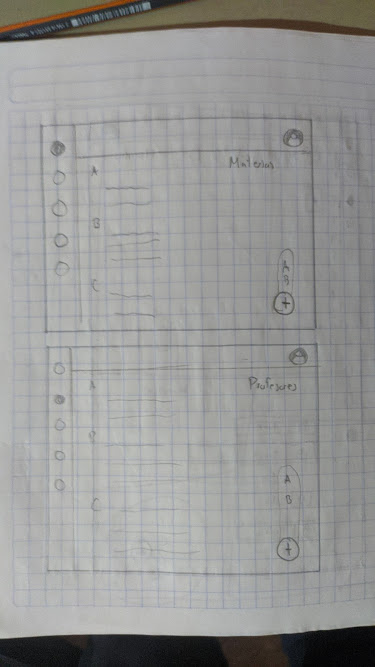 A
Materias
B
C
A
B
+
A
Profesores
B
C
A
B
+